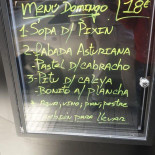 Menú Domingo 18€
1- Sopa d/ Pixín
2- Fabada Asturiana
- Pastel d/ Cabracho
3- Pitu d/ Caleya
- Bonito a/ Plancha
vino, pan, postre
para llevar